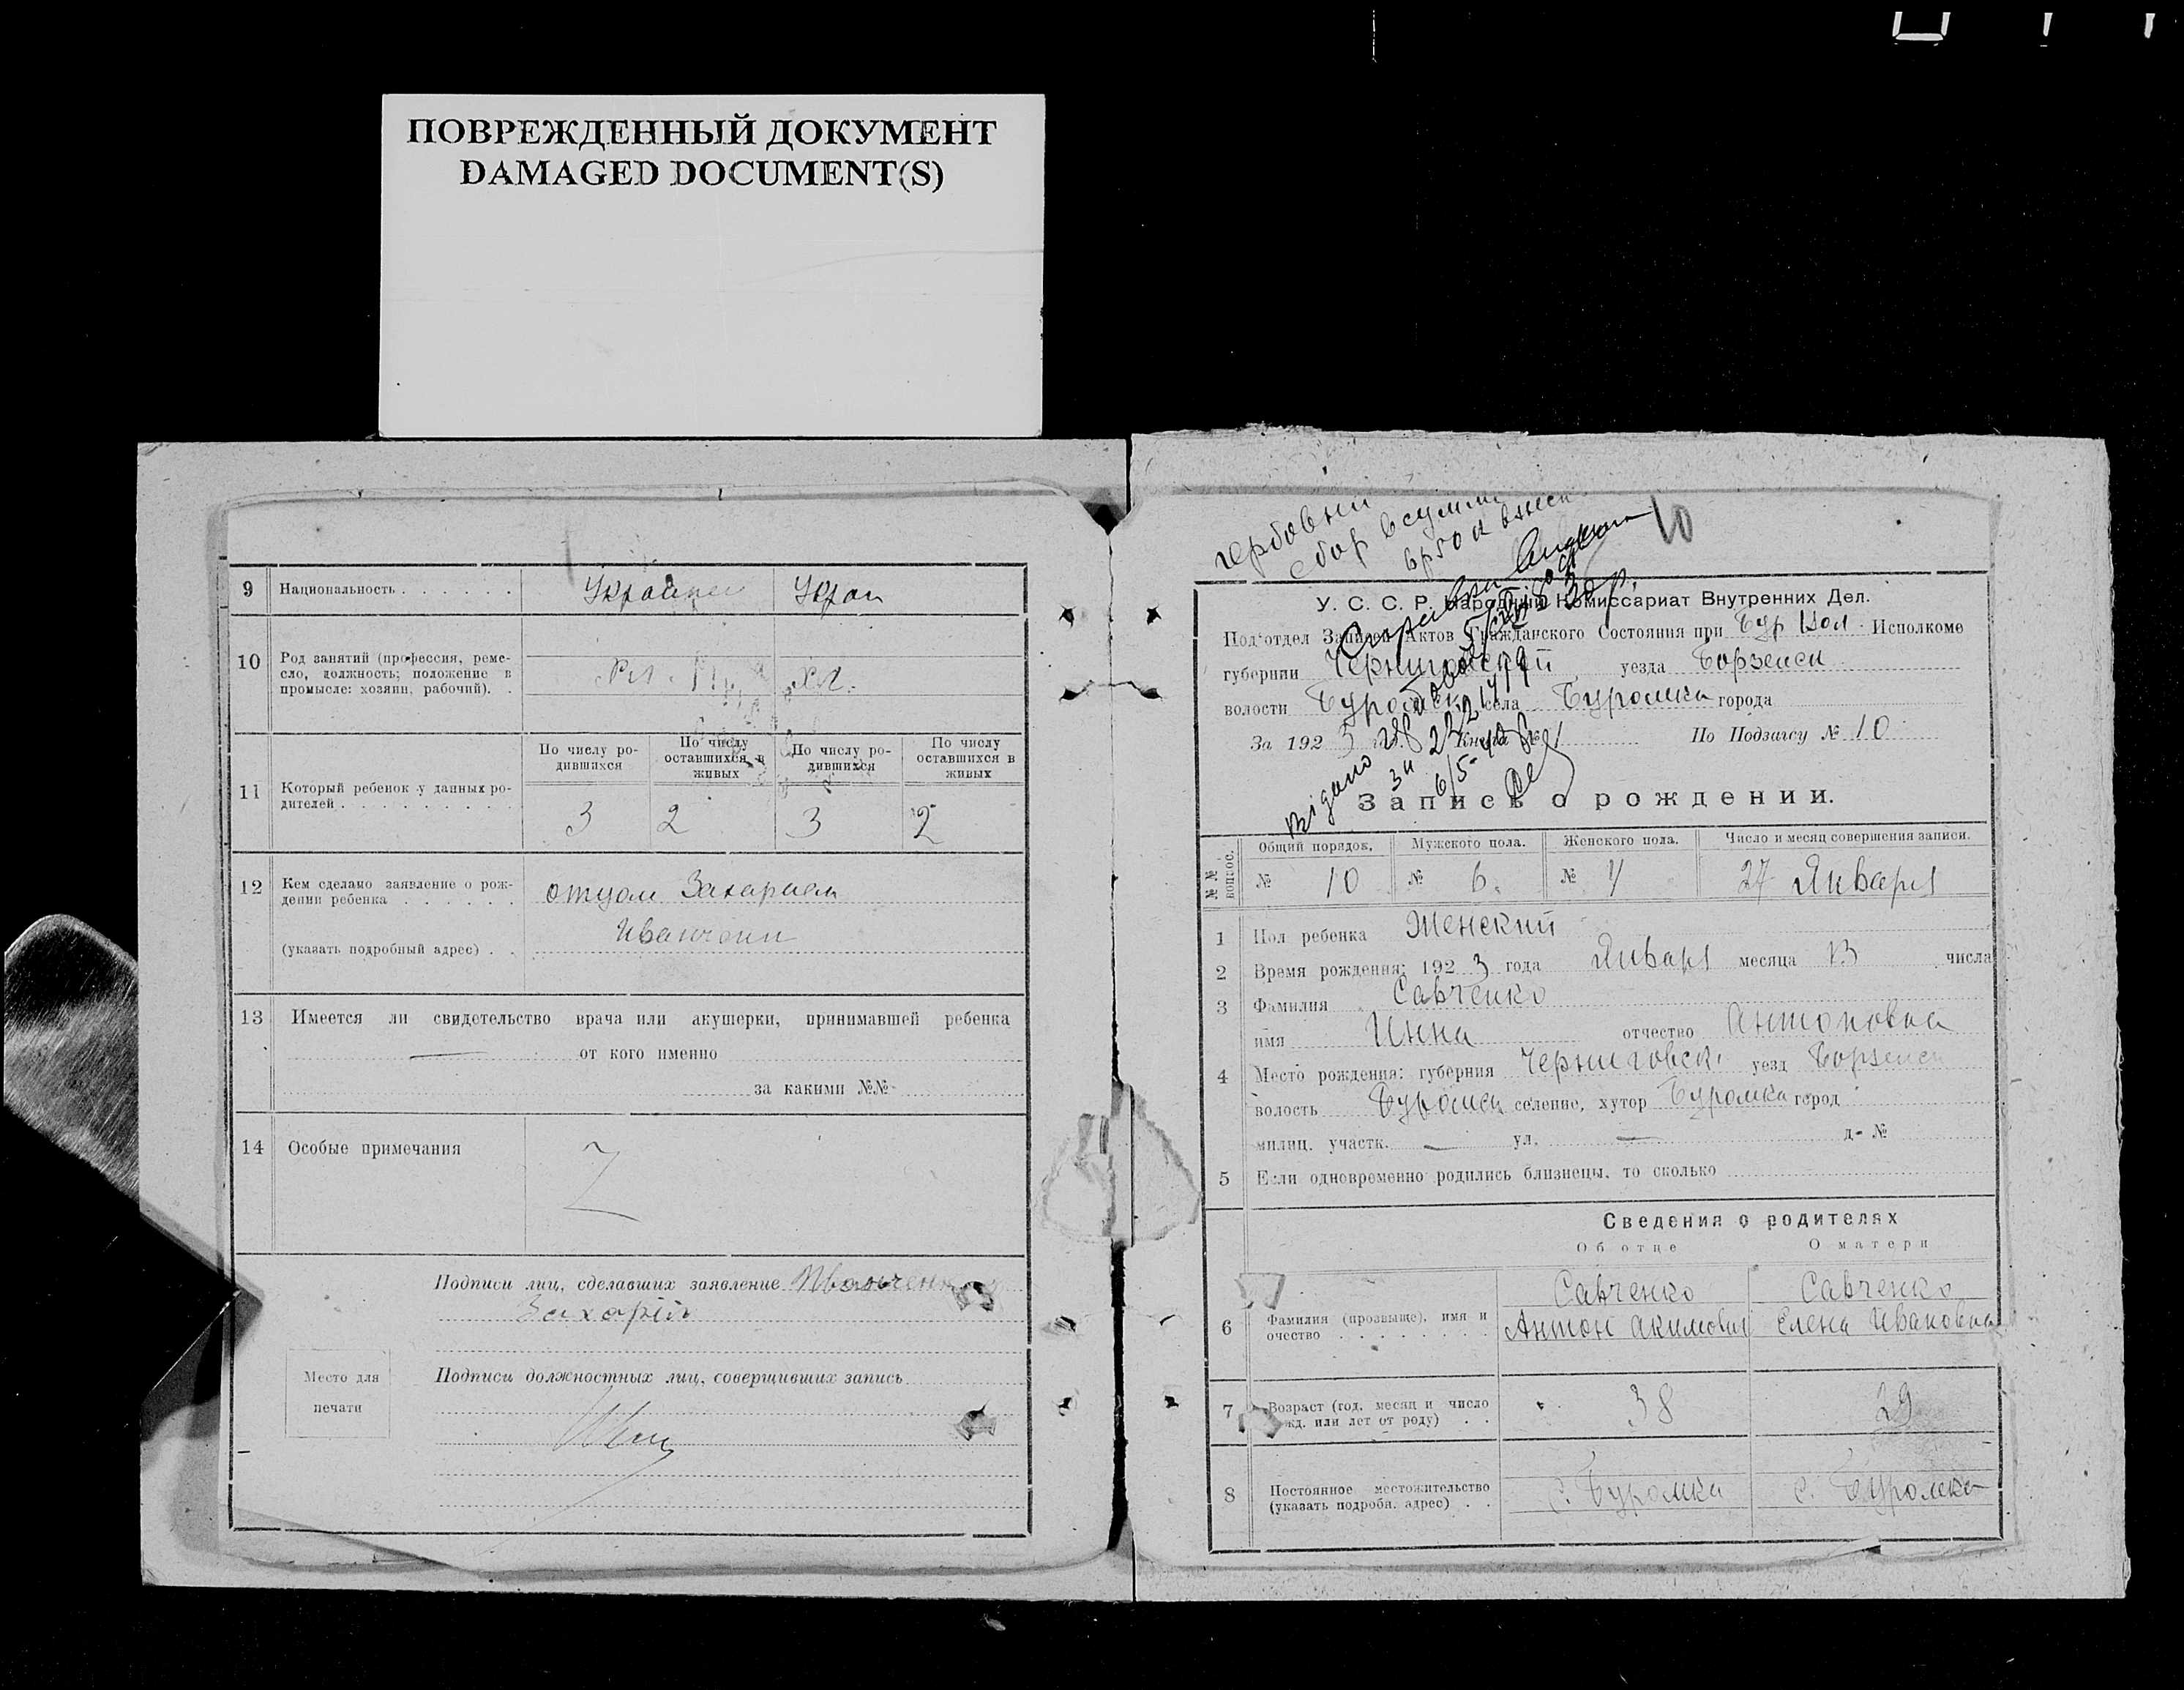 ПОВРЕЖДЕННЫЙ ДОКУМЕНТ
DAMAGED DOCUMENT(S)
9 Национальность . . . . . . Украинец Укран
10 Род занятий (профессия, реме-
сло, должность; положение в
промысле: хозяин, рабочий). . Хл. Хл.
11 Который ребенок у данных ро-
дителей . . . . . . . . .
По числу ро-
дившихся
По числу
оставшихся в
живых
По числу ро-
дившихся
По числу
оставшихся в
живых
3 2 3 2
12 Кем сделано заявление о рож-
дении ребенка . . . . . . отцом Захарием
(указать подробный адрес) . .
13 Имеется ли свидетельство врача или акушерки, принимавшей ребенка
— от кого именно
за какими №№
14 Особые примечания
Подписи лиц, сделавших заявление
Захарій
Место для
печати
Подписи должностных лиц, совершивших запись
гербовый
сбор в сумме
10
У. С. С. Р. Народный Комиссариат Внутренних Дел.
Под'отдел Записей Актов Гражданского Состояния при Бур Вол Исполкоме
губернии Черниговской уезда Борзенск
волости села Буромка города
За 192 3 Книга № 1 По Подзагсу № 10
Запись о рождении.
№ № вопрос.
Общий порядок. Мужского пола. Женского пола. Число и месяц совершения записи.
№ 10 № 6. № 4 27 Января
1 Пол ребенка Женский
2 Время рождения: 192 3 года Января месяца 13 числа
3 Фамилия Савченко
имя Инна отчество Антоновна
4 Место рождения: губерния Черниговск. уезд Борзенск
волость Буромск селение, хутор Буромка город
милиц. участк. — ул. — д. №
5 Если одновременно родились близнецы, то сколько
Сведения о родителях
Об отце О матери
6 Фамилия (прозвыще), имя и
очество . . . . . . . .
Савченко Савченко
Антон Акимович Елена Ивановна
7 Возраст (год, месяц и число
рожд. или лет от роду) . . 38 29
8 Постоянное местожительство
(указать подробн. адрес) . . с. Буромка с. Буромка